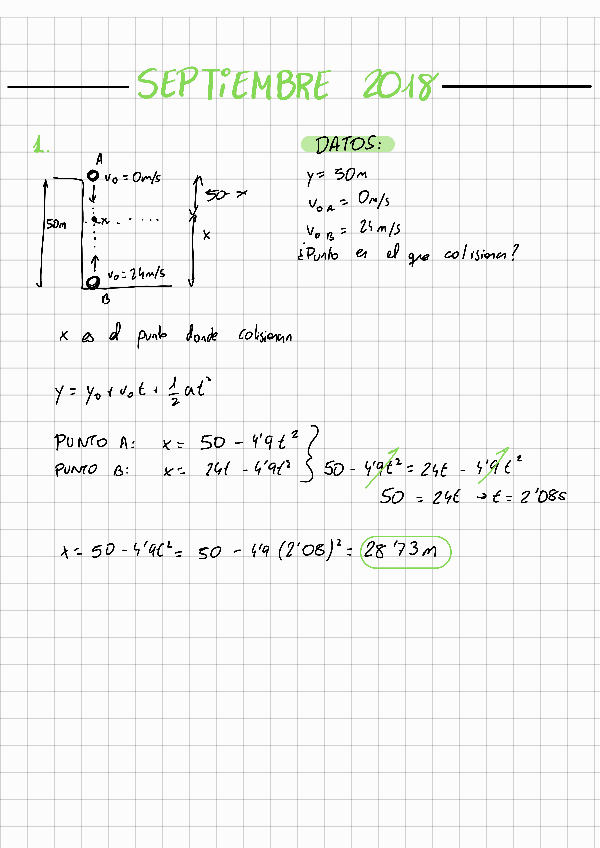 SEPTIEMBRE 2018
1.
DATOS:
A
v₀ = 0m/s
50 - x
y = 50m
v₀ A = 0m/s
50m
x
x
v₀ B = 24m/s
¿Punto en el que colisionan?
v₀ = 24m/s
B
x es el punto donde colisionan
y = y₀ + v₀t + 1/2 at²
PUNTO A: x = 50 - 4'9t²
PUNTO B: x = 24t - 4'9t² } 50 - 4'9t² = 24t - 4'9t²
50 = 24t → t = 2'08s
x = 50 - 4'9t² = 50 - 4'9 (2'08)² = 28'73 m